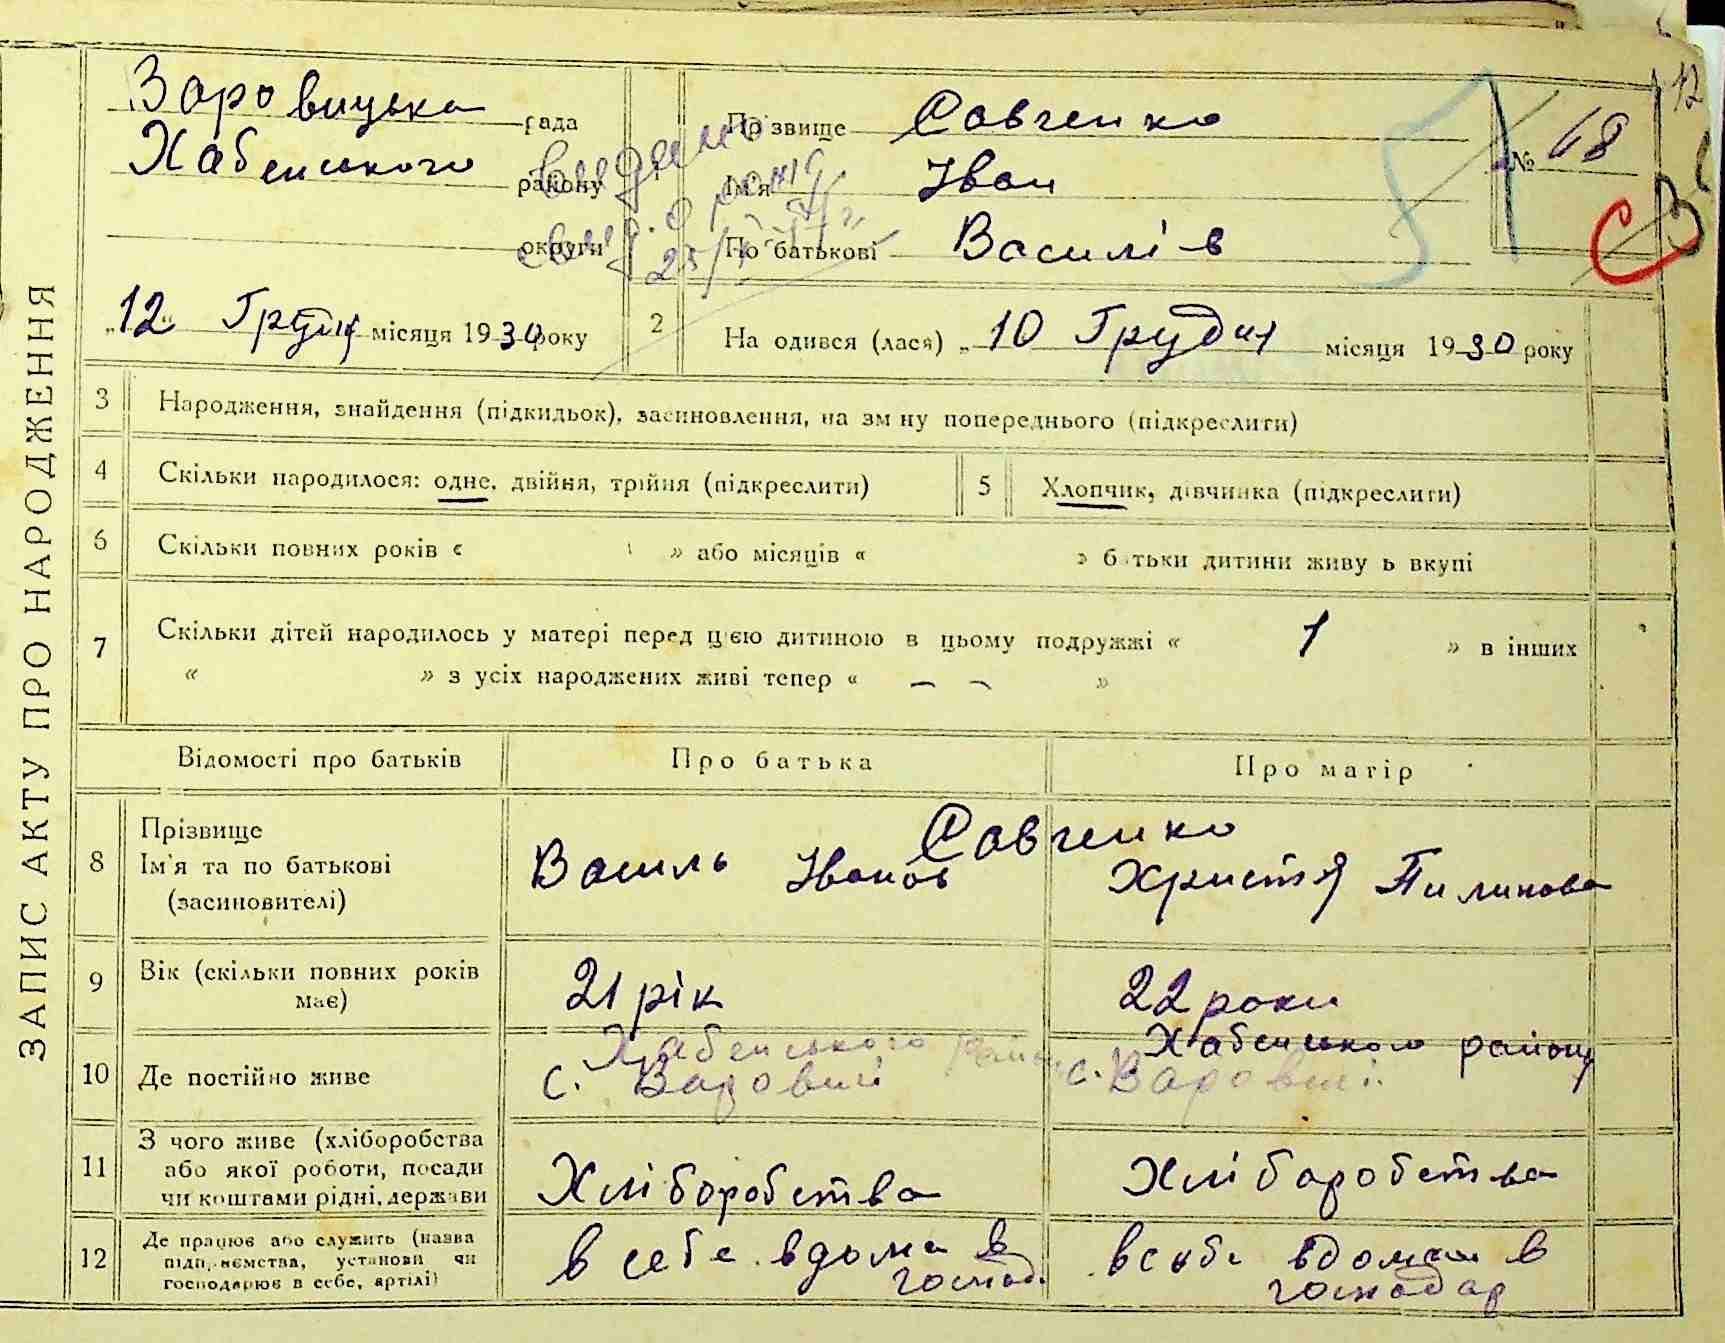 ЗАПИС АКТУ ПРО НАРОДЖЕННЯ
12
Заровицька рада
Хабенського району
округи
Видано
25/
Прізвище Савченко
Ім'я Іван
По батькові Василів
№ 48
51
СЗ
„12“ Грудня місяця 1930 року
2 На одився (лася) „10 Грудня місяця 1930 року
3 Народження, знайдення (підкидьок), засиновлення, на зм ну попереднього (підкреслити)
4 Скільки народилося: одне, двійня, трійня (підкреслити)
5 Хлопчик, дівчинка (підкреслити)
6 Скільки повних років « » або місяців « » б тьки дитини живу ь вкупі
7 Скільки дітей народилось у матері перед цією дитиною в цьому подружжі « 1 » в інших
« » з усіх народжених живі тепер « – – »
Відомості про батьків Про батька Про матір
8 Прізвище
Ім'я та по батькові
(засиновителі)
Савченко
Василь Іванов Христя Пилипова
9 Вік (скільки повних років
має)
21 рік 22 роки
10 Де постійно живе
Хабенського район
с. Варовичі
Хабенського району
с. Варовичі
11 З чого живе (хліборобства
або якої роботи, посади
чи коштами рідні, держави
Хліборобства Хліборобства
12 Де працює або служить (назва
підп ємства, установи чи
господарює в себе, артілі)
в себе вдома в
господ.
в себе вдома в
господар